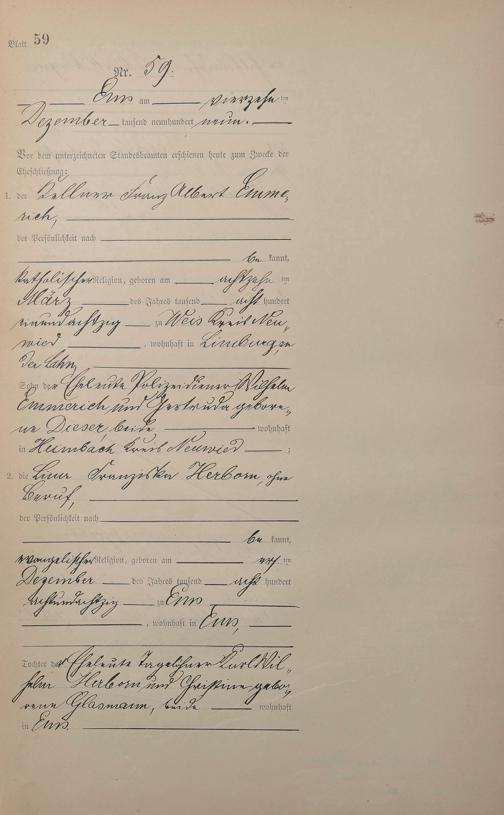 Blatt 59
Nr. 59.
Ems am vierzehnten
Dezember tausend neunhundert neun.
Vor dem unterzeichneten Standesbeamten erschienen heute zum Zwecke der
Eheschließung:
1. der Kellner Franz Albert Emme-
rich,
der Persönlichkeit nach
be kannt,
katholischer Religion, geboren am achtzehnten
März des Jahres tausend acht hundert
neunundachtzig zu Weis Kreis Neu-
wied, wohnhaft in Limburg, an
der Lahn,
Sohn der Eheleute Polizeidiener Wilhelm
Emmerich und Gertruda gebore-
ne Dieser beide wohnhaft
in Heimbach Kreis Neuwied;
2. die Lina Franziska Herborn, ohne
Beruf,
der Persönlichkeit nach
be kannt,
evangelischer Religion, geboren am
Dezember des Jahres tausend acht hundert
achtundachtzig zu Ems
, wohnhaft in Ems,
Tochter der Eheleute Tagelöhner Karl Wil-
helm Herborn und Christine gebo-
rene Glasmann, beide wohnhaft
in Ems.